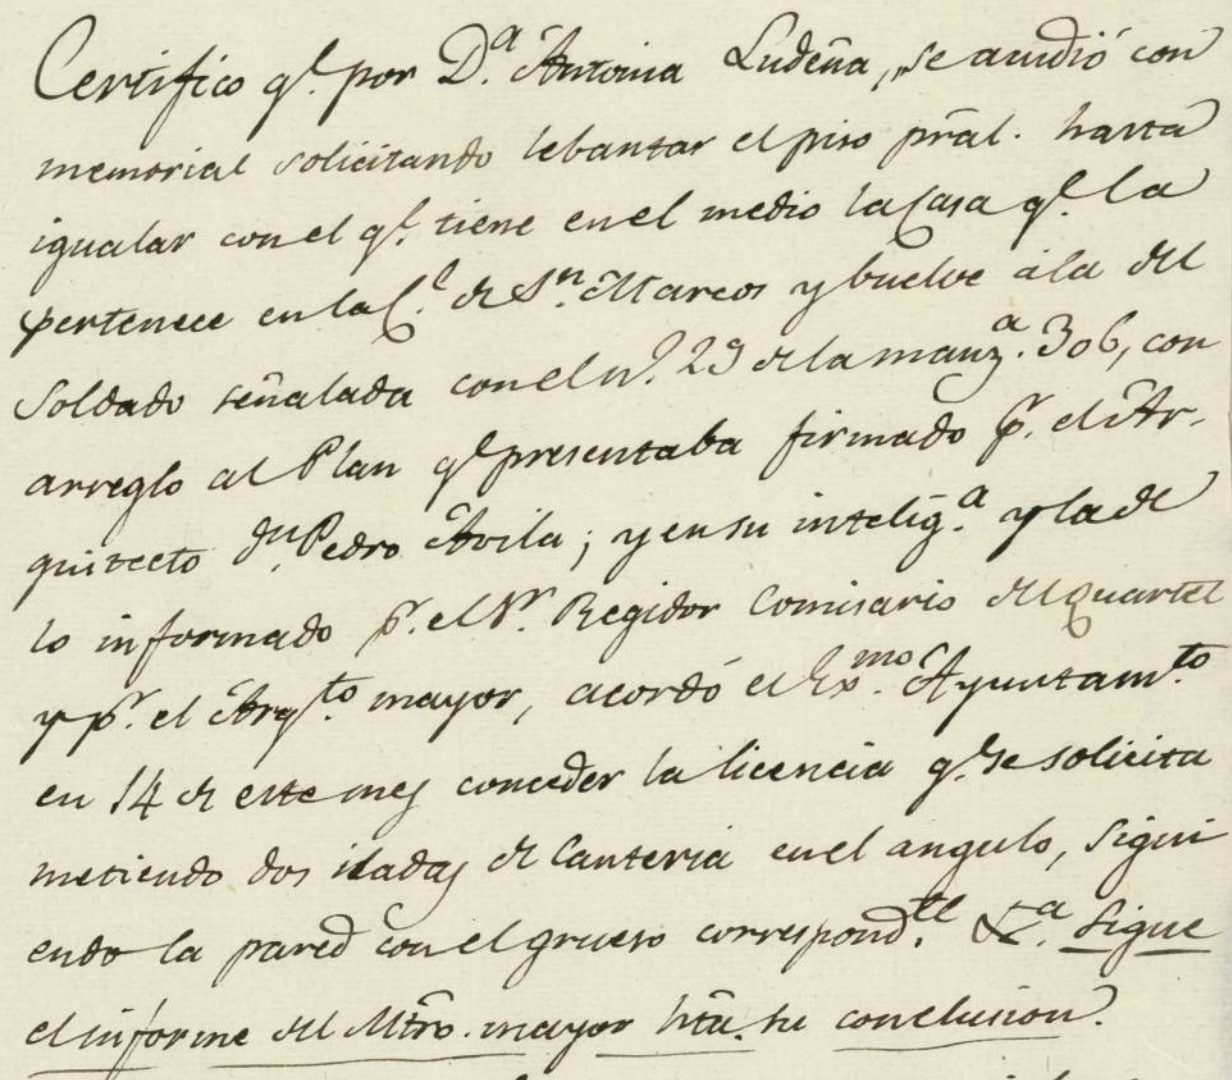 Certifico q.e por D.a Antonia Ludeña, se acudió con
memorial solicitando lebantar el piso pral. hasta
igualar con el q.e tiene en el medio la Casa q.e la
pertenece en la C.e de S.n Marcos y buelve á la del
Soldado señalada con el n.o 29 de la manz.a 306, con
arreglo al Plan q.e presentaba firmado p.r el Ar-
quitecto dn. Pedro Avila; y en su intelig.a y la de
lo informado p.r el Sr. Regidor Comisario del Quartel
y p.r el Arq.to mayor, acordó el Ex.mo Ayuntam.to
en 14 de este mes conceder la licencia q.e se solicita
metiendo dos iladas de Canteria en el angulo, sigui
endo la pared con el grueso correspond.te &.a Sigue
el informe del Mtro. mayor hta. su conclusion.